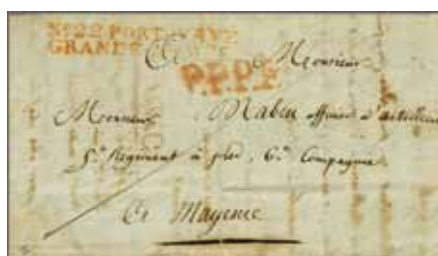 No. 22 PORT PAYÉ
GRANDE
A Monsieur
P.P.P.P.
Monsieur Rabeu officier d'artillerie
5e Régiment à pied, 6e Compagnie
A Mayence